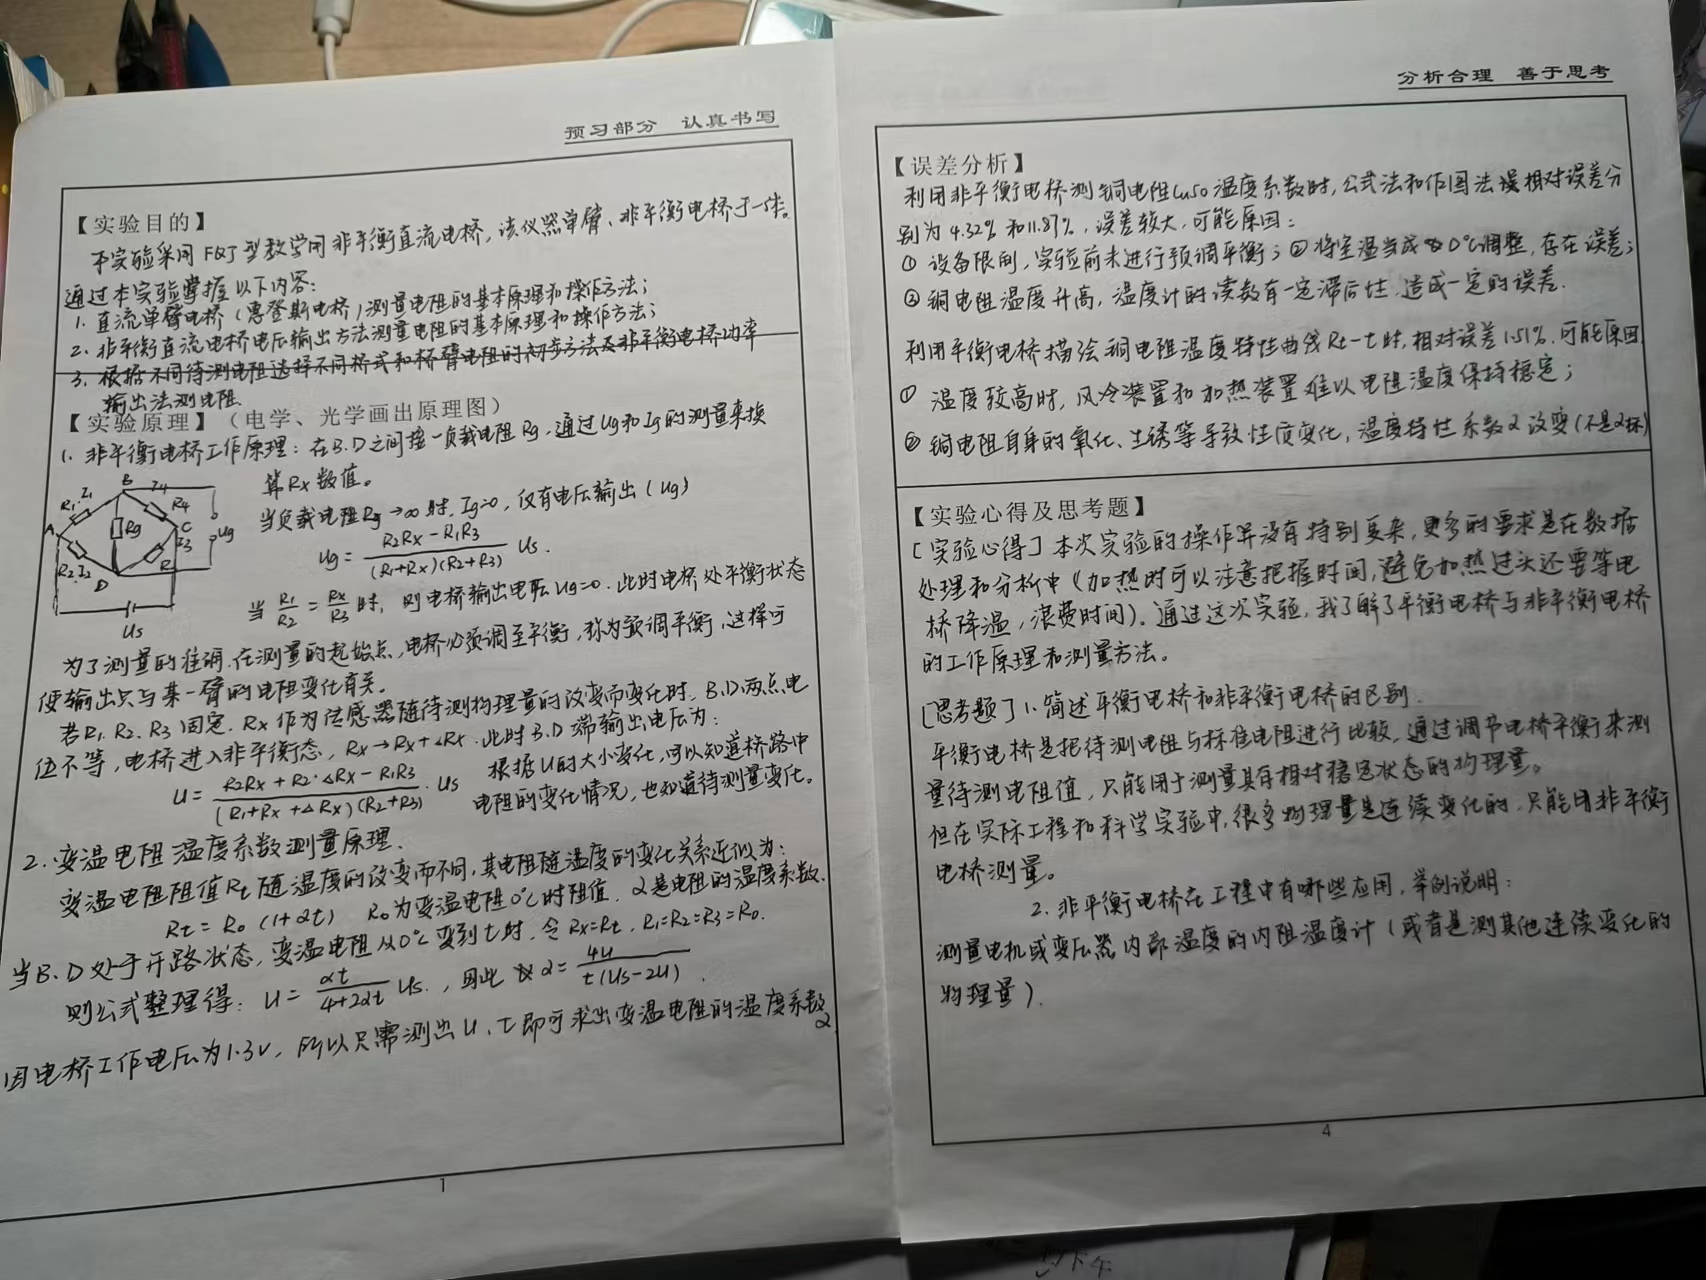 预习部分 认真书写
【实验目的】
本实验采用FQJ型教学用非平衡直流电桥，该仪器单臂、非平衡电桥于一体。
通过本实验掌握以下内容：
1. 直流单臂电桥（惠登斯电桥）测量电阻的基本原理和操作方法；
2. 非平衡直流电桥电压输出方法测量电阻的基本原理和操作方法；
3. 根据不同待测电阻选择不同桥式和桥臂电阻的初步方法及非平衡电桥功率
输出法测电阻.
【实验原理】（电学、光学画出原理图）
1. 非平衡电桥工作原理：在B.D之间接一负载电阻Rg.通过Ug和Ig的测量来换
算Rx数值。
当负载电阻Rg→∞时，Ig=0，仅有电压输出（Ug）
Ug = (R2Rx - R1R3)/((R1+Rx)(R2+R3)) Us.
当 R1/R2 = Rx/R3 时，则电桥输出电压Ug=0.此时电桥处平衡状态
A B C D R1 I1 I4 R4 Rg I3 Ug R2 I2 Us
为了测量的准确.在测量的起始点，电桥必须调至平衡，称为预调平衡，这样可
使输出只与某一臂的电阻变化有关。
若R1.R2.R3固定.Rx作为传感器随待测物理量的改变而变化时.B.D两点电
位不等，电桥进入非平衡态，Rx→Rx+△Rx.此时B.D端输出电压为：
U = (R2Rx + R2·△Rx - R1R3)/((R1+Rx+△Rx)(R2+R3)) · Us
根据U的大小变化，可以知道桥路中
电阻的变化情况，也知道待测量变化。
2. 变温电阻温度系数测量原理.
变温电阻阻值Rt随温度的改变而不同，其电阻随温度的变化关系近似为：
Rt = R0 (1+αt) R0为变温电阻0℃时阻值. α是电阻的温度系数.
当B.D处于开路状态，变温电阻从0℃变到t时.令Rx=Rt，R1=R2=R3=R0.
则公式整理得：U = αt/(4+2αt) Us.，因此 α = 4U/(t(Us-2U)).
因电桥工作电压为1.3V，所以只需测出U、t即可求出变温电阻的温度系数
α
1
分析合理 善于思考
【误差分析】
利用非平衡电桥测铜电阻Cu50温度系数时，公式法和作图法误相对误差分
别为4.32%和11.87%，误差较大，可能原因：
① 设备限制，实验前未进行预调平衡；② 将室温当成0℃调整，存在误差；
③ 铜电阻温度升高，温度计的读数有一定滞后性.造成一定的误差.
利用平衡电桥描绘铜电阻温度特性曲线Rt-t时，相对误差1.51%.可能原因
① 温度较高时，风冷装置和加热装置难以电阻温度保持稳定；
② 铜电阻自身的氧化、生锈等导致性质变化，温度特性系数α改变（不是α标）
【实验心得及思考题】
[实验心得] 本次实验的操作并没有特别复杂，更多的要求是在数据
处理和分析中（加热时可以注意把握时间，避免加热过头还要等电
桥降温，浪费时间）。通过这次实验，我了解了平衡电桥与非平衡电桥
的工作原理和测量方法。
[思考题] 1.简述平衡电桥和非平衡电桥的区别.
平衡电桥是把待测电阻与标准电阻进行比较，通过调节电桥平衡来测
量待测电阻值，只能用于测量具有相对稳定状态的物理量。
但在实际工程和科学实验中，很多物理量是连续变化的，只能用非平衡
电桥测量。
2. 非平衡电桥在工程中有哪些应用，举例说明：
测量电机或变压器内部温度的内阻温度计（或者是测其他连续变化的
物理量）.
4
下午